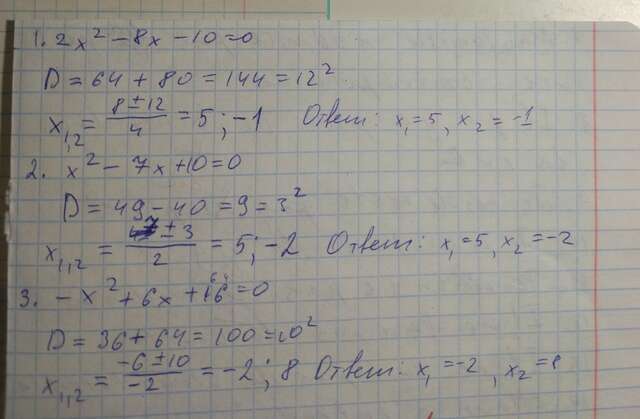 1. 2x² - 8x - 10 = 0
D = 64 + 80 = 144 = 12²
x₁,₂ = (8 ± 12)/4 = 5 ; -1 Ответ: x₁ = 5, x₂ = -1
2. x² - 7x + 10 = 0
D = 49 - 40 = 9 = 3²
x₁,₂ = (7 ± 3)/2 = 5 ; -2 Ответ: x₁ = 5, x₂ = -2
3. -x² + 6x + 16 = 0
D = 36 + 64 = 100 = 10²
x₁,₂ = (-6 ± 10)/-2 = -2 ; 8 Ответ: x₁ = -2, x₂ = 8